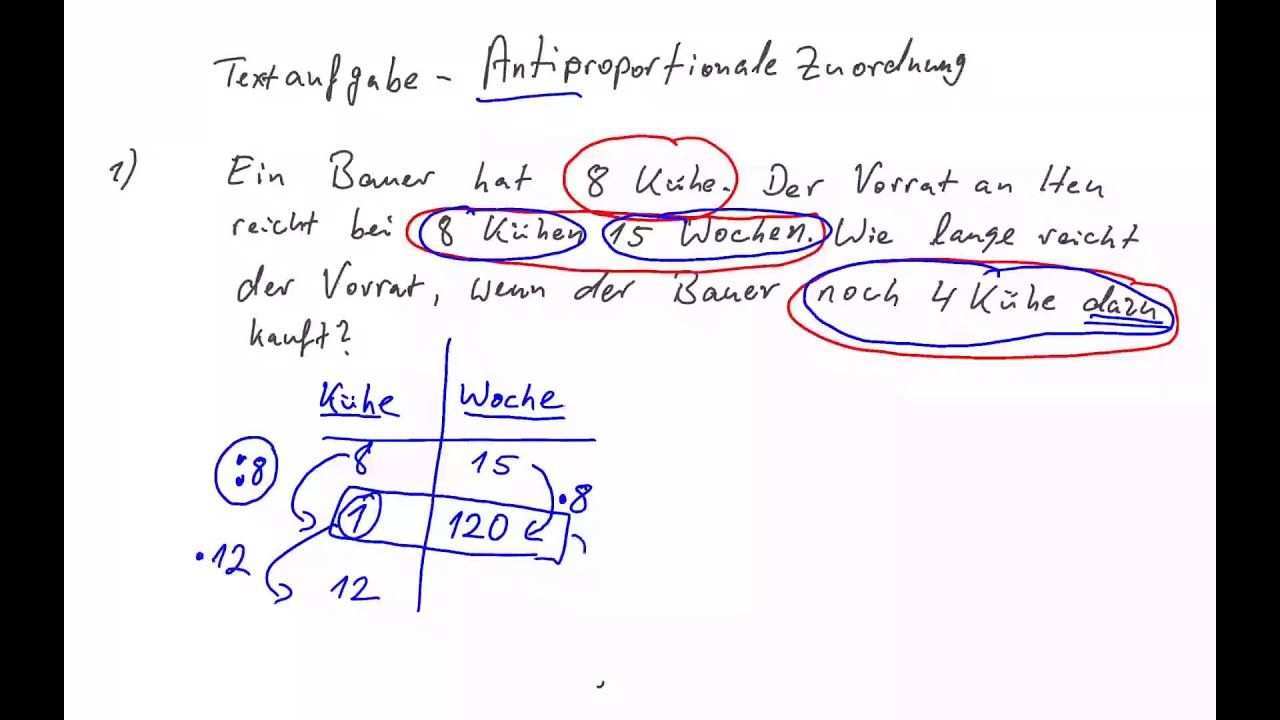 Textaufgabe - Antiproportionale Zuordnung
1) Ein Bauer hat 8 Kühe. Der Vorrat an Heu
reicht bei 8 Kühen 15 Wochen. Wie lange reicht
der Vorrat, wenn der Bauer noch 4 Kühe dazu
kauft?
Kühe Woche
:8 8 15 ·8
1 120
·12 12